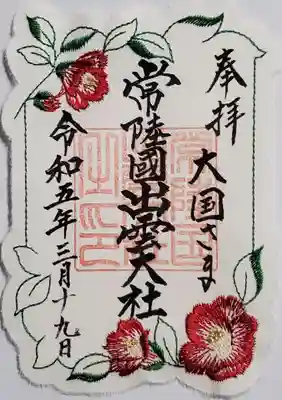 奉拝
大国さま
常陸國出雲大社
令和五年三月十九日